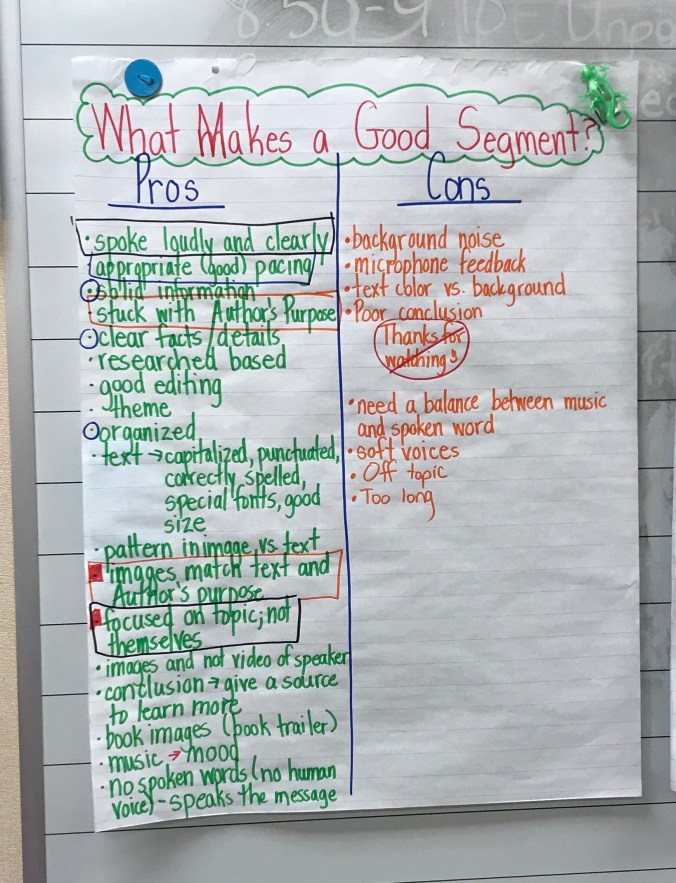 8:50-9
What Makes a Good Segment?
Pros
• spoke loudly and clearly
appropriate (good) pacing
solid information
• stuck with Author's Purpose
clear facts/details
• researched based
• good editing
• theme
organized
• text → capitalized, punctuated,
correctly, spelled,
special fonts, good
size
• pattern in image vs. text
• images match text and
Author's purpose
• focused on topic; not
themselves
• images and not video of speaker
• conclusion → give a source
to learn more
• book images (book trailer)
• music → mood
• no spoken words (no human
voice) - speaks the message
Cons
• background noise
• microphone feedback
• text color vs. background
• Poor conclusion
Thanks for
watching!
• need a balance between music
and spoken word
• soft voices
• Off topic
• Too long